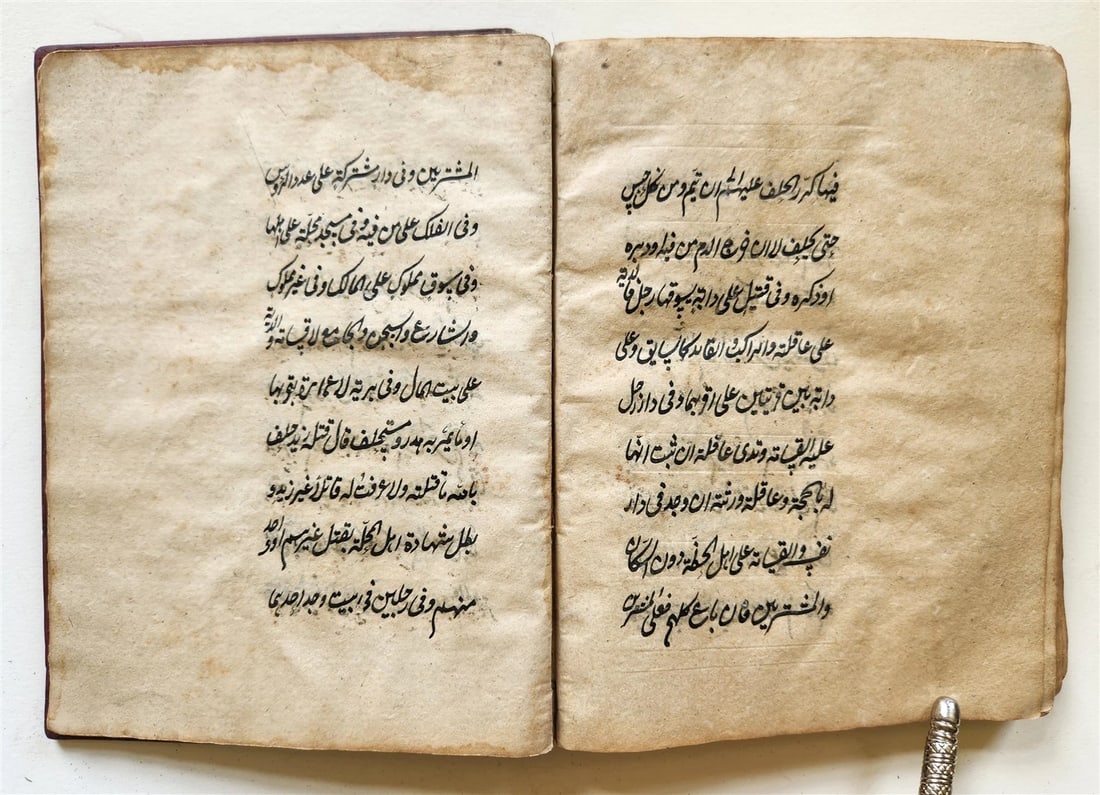 فيها كرر الحلف عليهم الى ان تيم ومن نكل حبس
حتى يحلف لا ان خرج الدم من فيه او دبره
او ذكره وفى قتيل على دابة يسوقها رجل فالدية
على عاقلته والراكب والقائد كالسايق وعلى
دابة بين قريتين على اقربهما وفى دار رجل
عليه القسامة وتدى عاقلته ان ثبت انها
له بالحجة وعاقلة ورثته ان وجد فى دار
نفسه والقسامة على اهل الخطة دون السكان
والمشترين فان باع كلهم فعلى المشترين
المشتريين وفى دار مشتركة على عدد الرؤس
وفى الفلك على من فيه وفى مسجد محلة على اهلها
وفى سوق مملوك على المالك وفى غير مملوك
والشارع والسجن والجامع لا قسامة والدية
على بيت المال وفى برية لا عمارة بقربها
او ماء يمر به هدر ومستحلف قال قتله زيد حلف
بالله ما قتلته ولا عرفت له قاتلا غير زيد و
بطل شهادة اهل المحلة بقتل غيرهم او واحد
منهم وفى رجلين فى بيت وجد احدهما